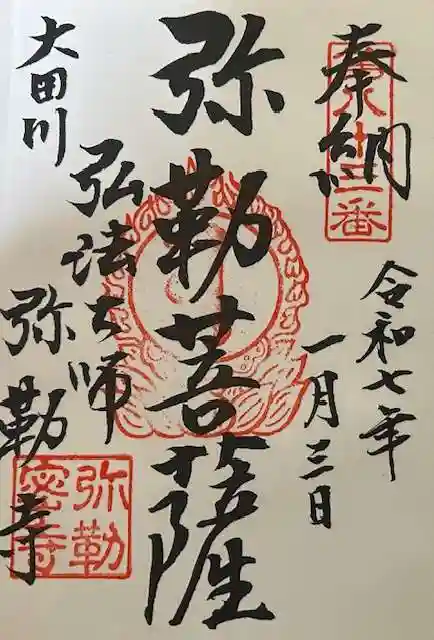 奉納
第八十三番
令和七年
一月三日
弥勒菩薩
弘法大師
大田川
弥勒寺
弥勒
密寺